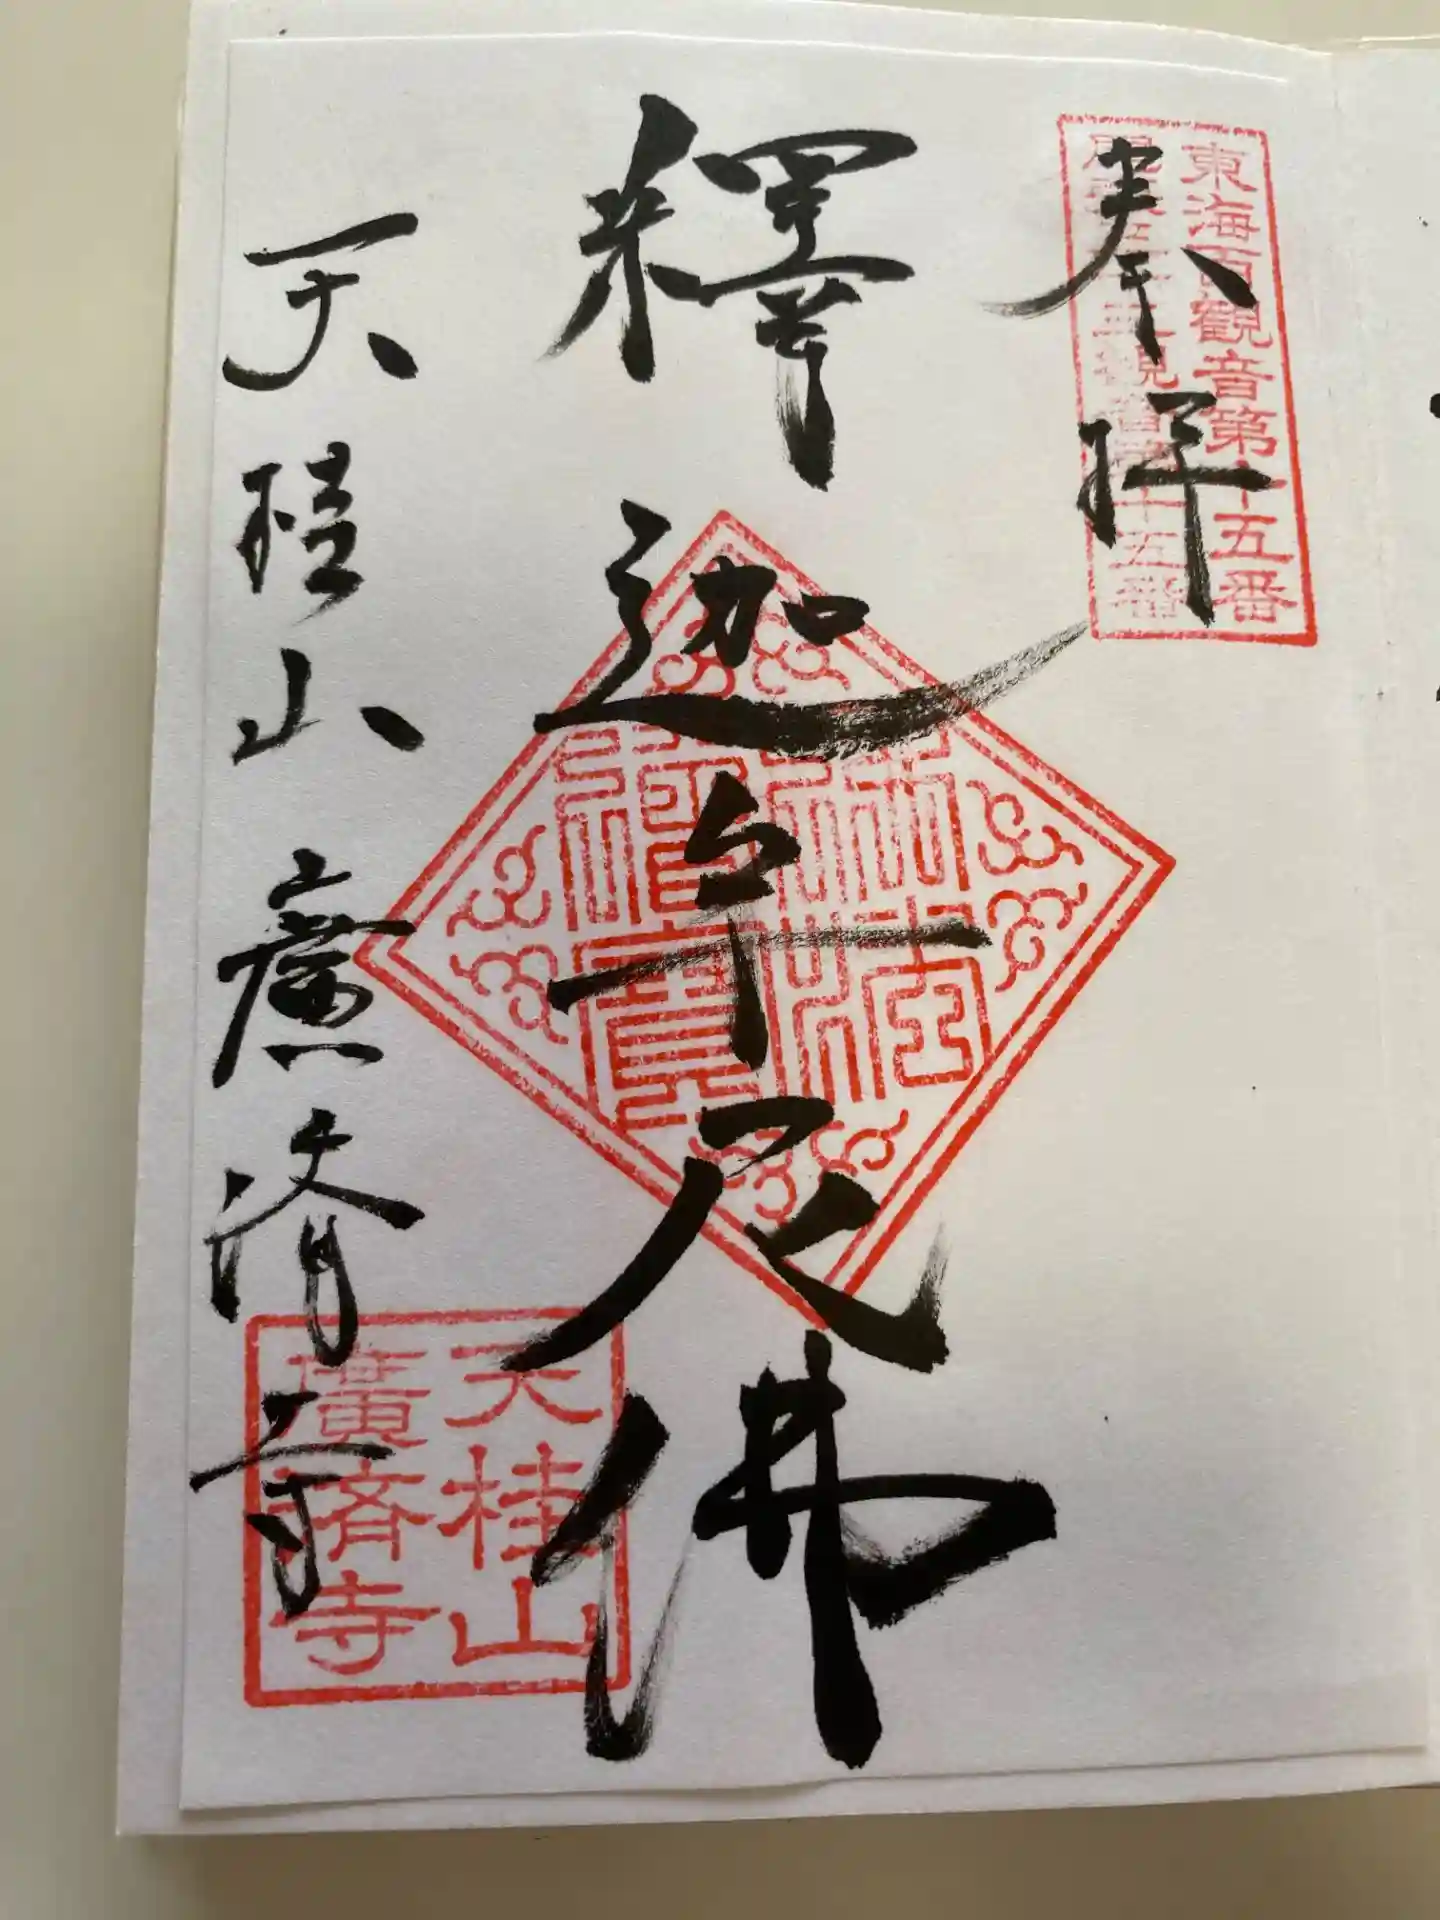 奉拝
東海百観音第十五番
尾張三十三観音第十五番
釋迦牟尼佛
佛法
僧寶
天桂山廣済寺
天桂山
廣済寺